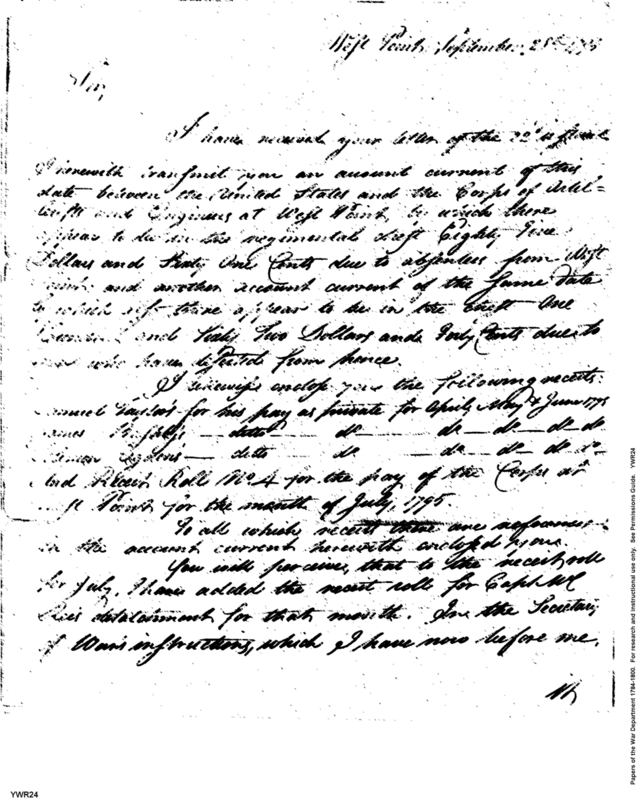 West Point, September 25th 1795
Sir,
I have received your letter of the 22d instant
I herewith transmit you an account current of this
date between the United States and the Corps of Artil=
and Engineers at West Point, by which there
appear to be in the regimental chest Eighty five
Dollars and Sixty One Cents due to absentees from West
Point and another account current of the same date
by which there appear to be in the chest One
hundred and Sixty Two Dollars and Forty Cents due to
men who have deserted from hence.
I likewise enclose you the following receipts.
Samuel for his pay as private for April, May & June 1795
James ditto do do do do
ditto do do do do
And Receipt Roll No. 4 for the pay of the Corps at
West Point for the month of July, 1795.
To all which receipts there are references
in the account current herewith enclosed you.
You will perceive, that to the receipt roll
for July, I have added the receipt roll for Capt.
detachment for that month. In the Secretary
of War's instructions, which I have now before me,
YWR24
Papers of the War Department 1784-1800. For research and instructional use only. See Permissions Guide. YWR24